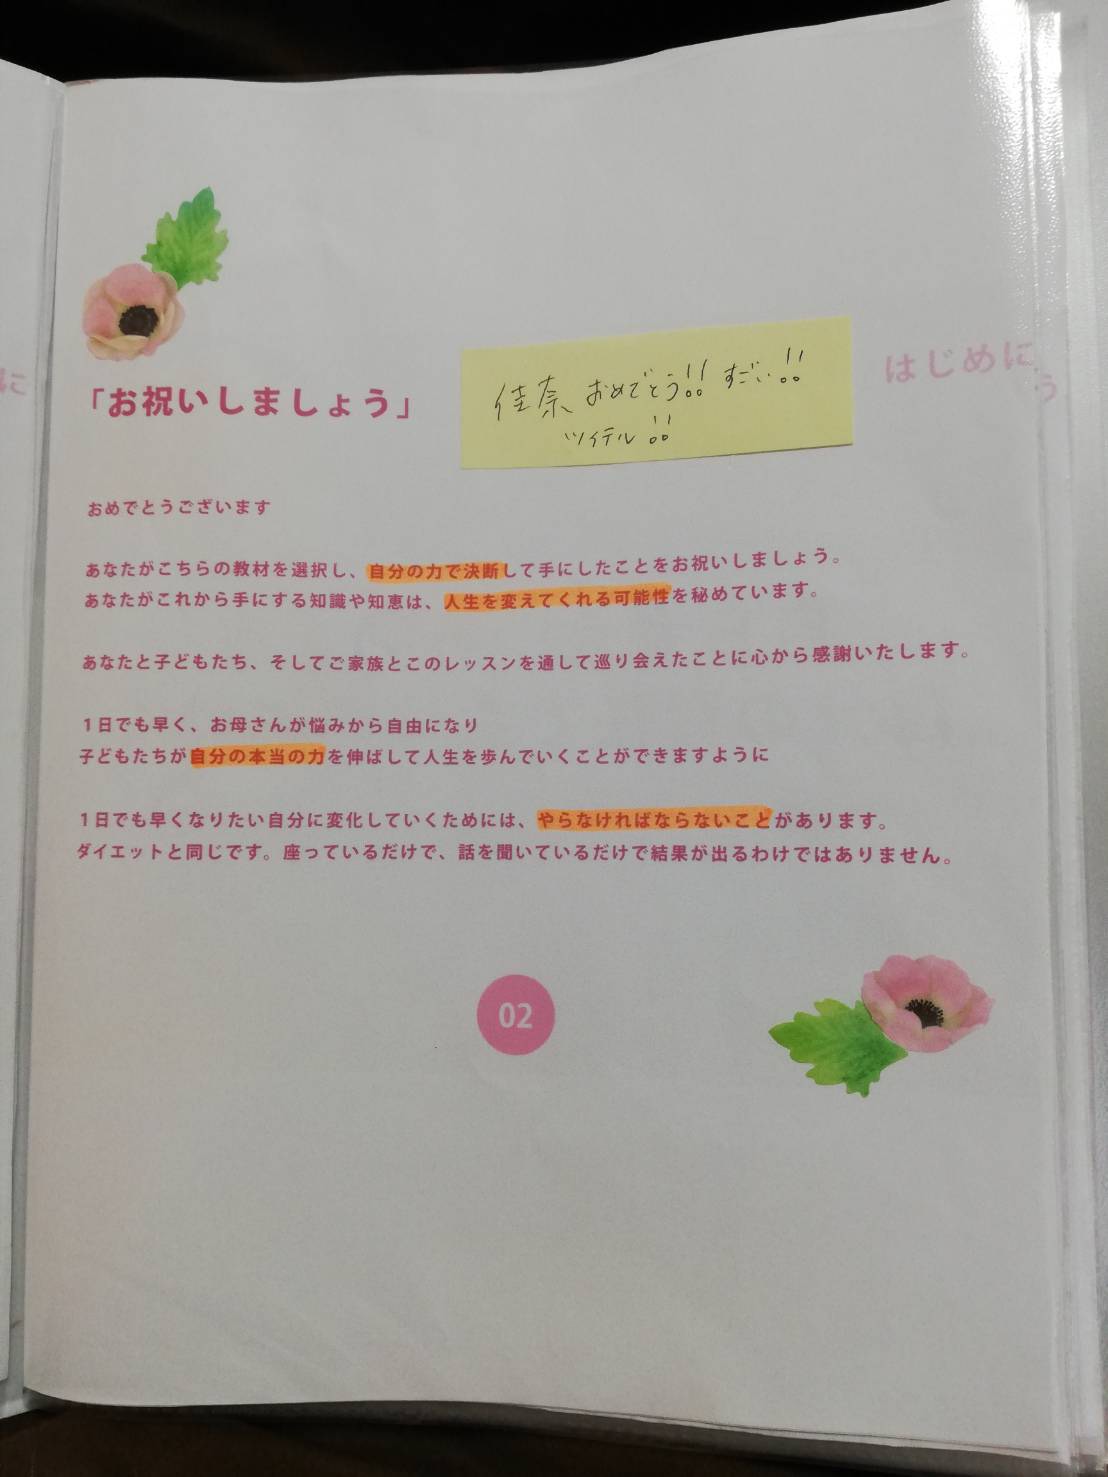 はじめに
「お祝いしましょう」
佳奈 おめでとう!! すごい!!
ツイテル!!
おめでとうございます
あなたがこちらの教材を選択し、自分の力で決断して手にしたことをお祝いしましょう。
あなたがこれから手にする知識や知恵は、人生を変えてくれる可能性を秘めています。
あなたと子どもたち、そしてご家族とこのレッスンを通して巡り会えたことに心から感謝いたします。
1日でも早く、お母さんが悩みから自由になり
子どもたちが自分の本当の力を伸ばして人生を歩んでいくことができますように
1日でも早くなりたい自分に変化していくためには、やらなければならないことがあります。
ダイエットと同じです。座っているだけで、話を聞いているだけで結果が出るわけではありません。
02